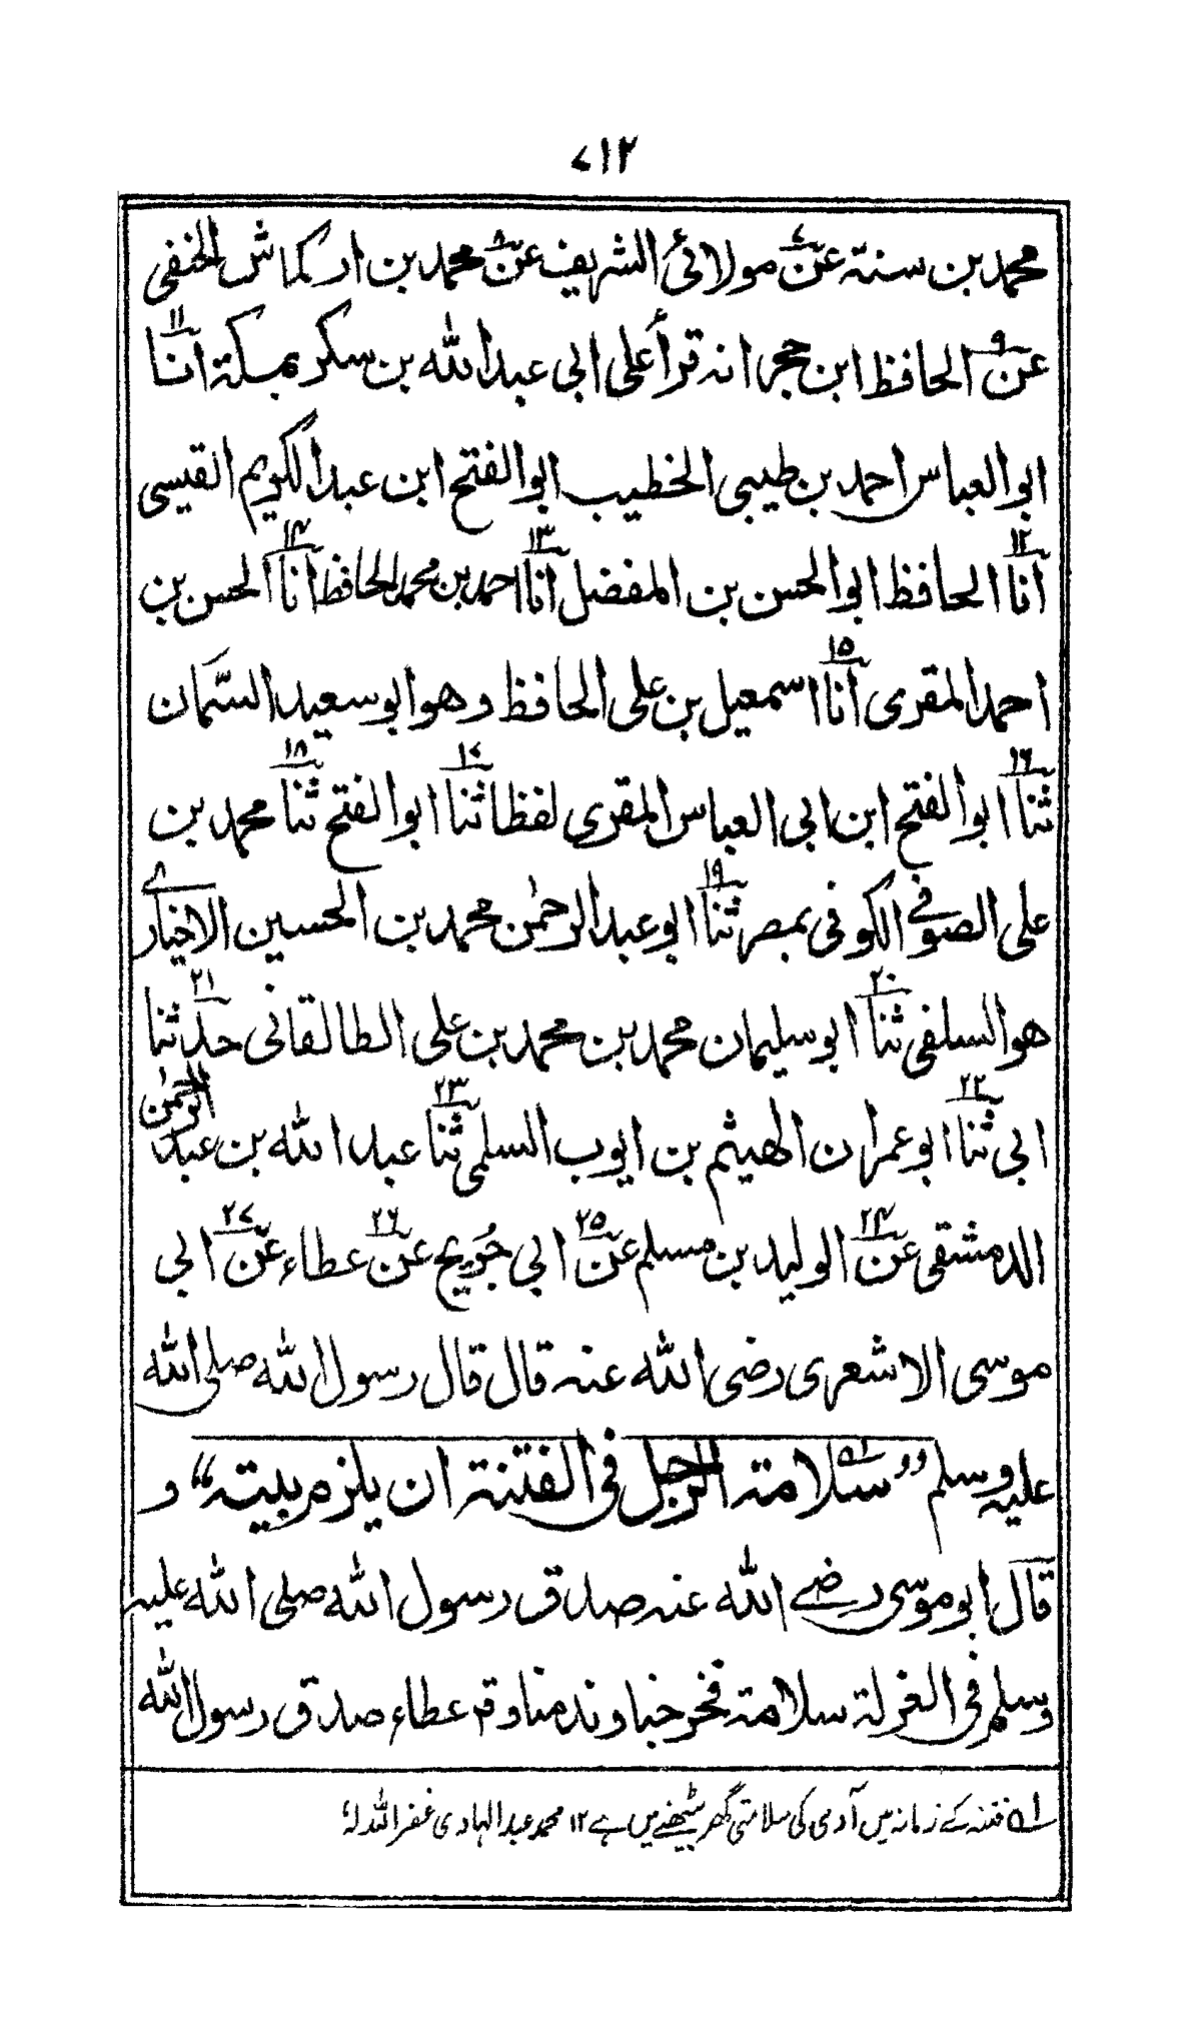 ۷۱۲
محمد بن سنة عن۷ مولائی الشریف عن۸ محمد بن ارکماش الحنفی
عن۹ الحافظ ابن حجر انه قرأ علی ابی عبد الله بن سکر بمکة انا۱۱
ابو العباس احمد بن طیبی الخطیب ابو الفتح ابن عبد الکریم القیسی
انا۱۲ الحافظ ابو الحسن بن المفضل انا۱۳ احمد بن محمد الحافظ انا۱۴ الحسن بن
احمد المقری انا۱۵ اسمعیل بن علی الحافظ وهو ابو سعید السّمان
ثنا۱۶ ابو الفتح ابن ابی العباس المقری لفظا ثنا۱۷ ابو الفتح ثنا۱۸ محمد بن
علی الصوفی الکوفی بمصر ثنا۱۹ ابو عبد الرحمٰن محمد بن الحسین الاخباری
هو السلفی ثنا۲۰ ابو سلیمان محمد بن محمد بن علی الطالقانی حدثنا۲۱
ابی ثنا۲۲ ابو عمران الهیثم بن ایوب السلمی ثنا۲۳ عبد الله بن عبد الرحمٰن
الدمشقی عن۲۴ الولید بن مسلم عن۲۵ ابی جُریج عن۲۶ عطاء عن۲۷ ابی
موسی الاشعری رضی الله عنه قال قال رسول الله صلی الله
علیه وسلم ”سلامة۱ه الرجل فی الفتنة ان یلزم بیته“ و
قال ابو موسی رضی الله عنه صدق رسول الله صلی الله علیه
وسلم فی الغزلة سلامة فخر خباوند مناوقد عطاء صدق رسول الله
۱ه فتنہ کے زمانہ میں آدمی کی سلامتی گھر بیٹھنے میں ہے ۱۲ محمد عبد الہادی غفر اللہ لہٗ